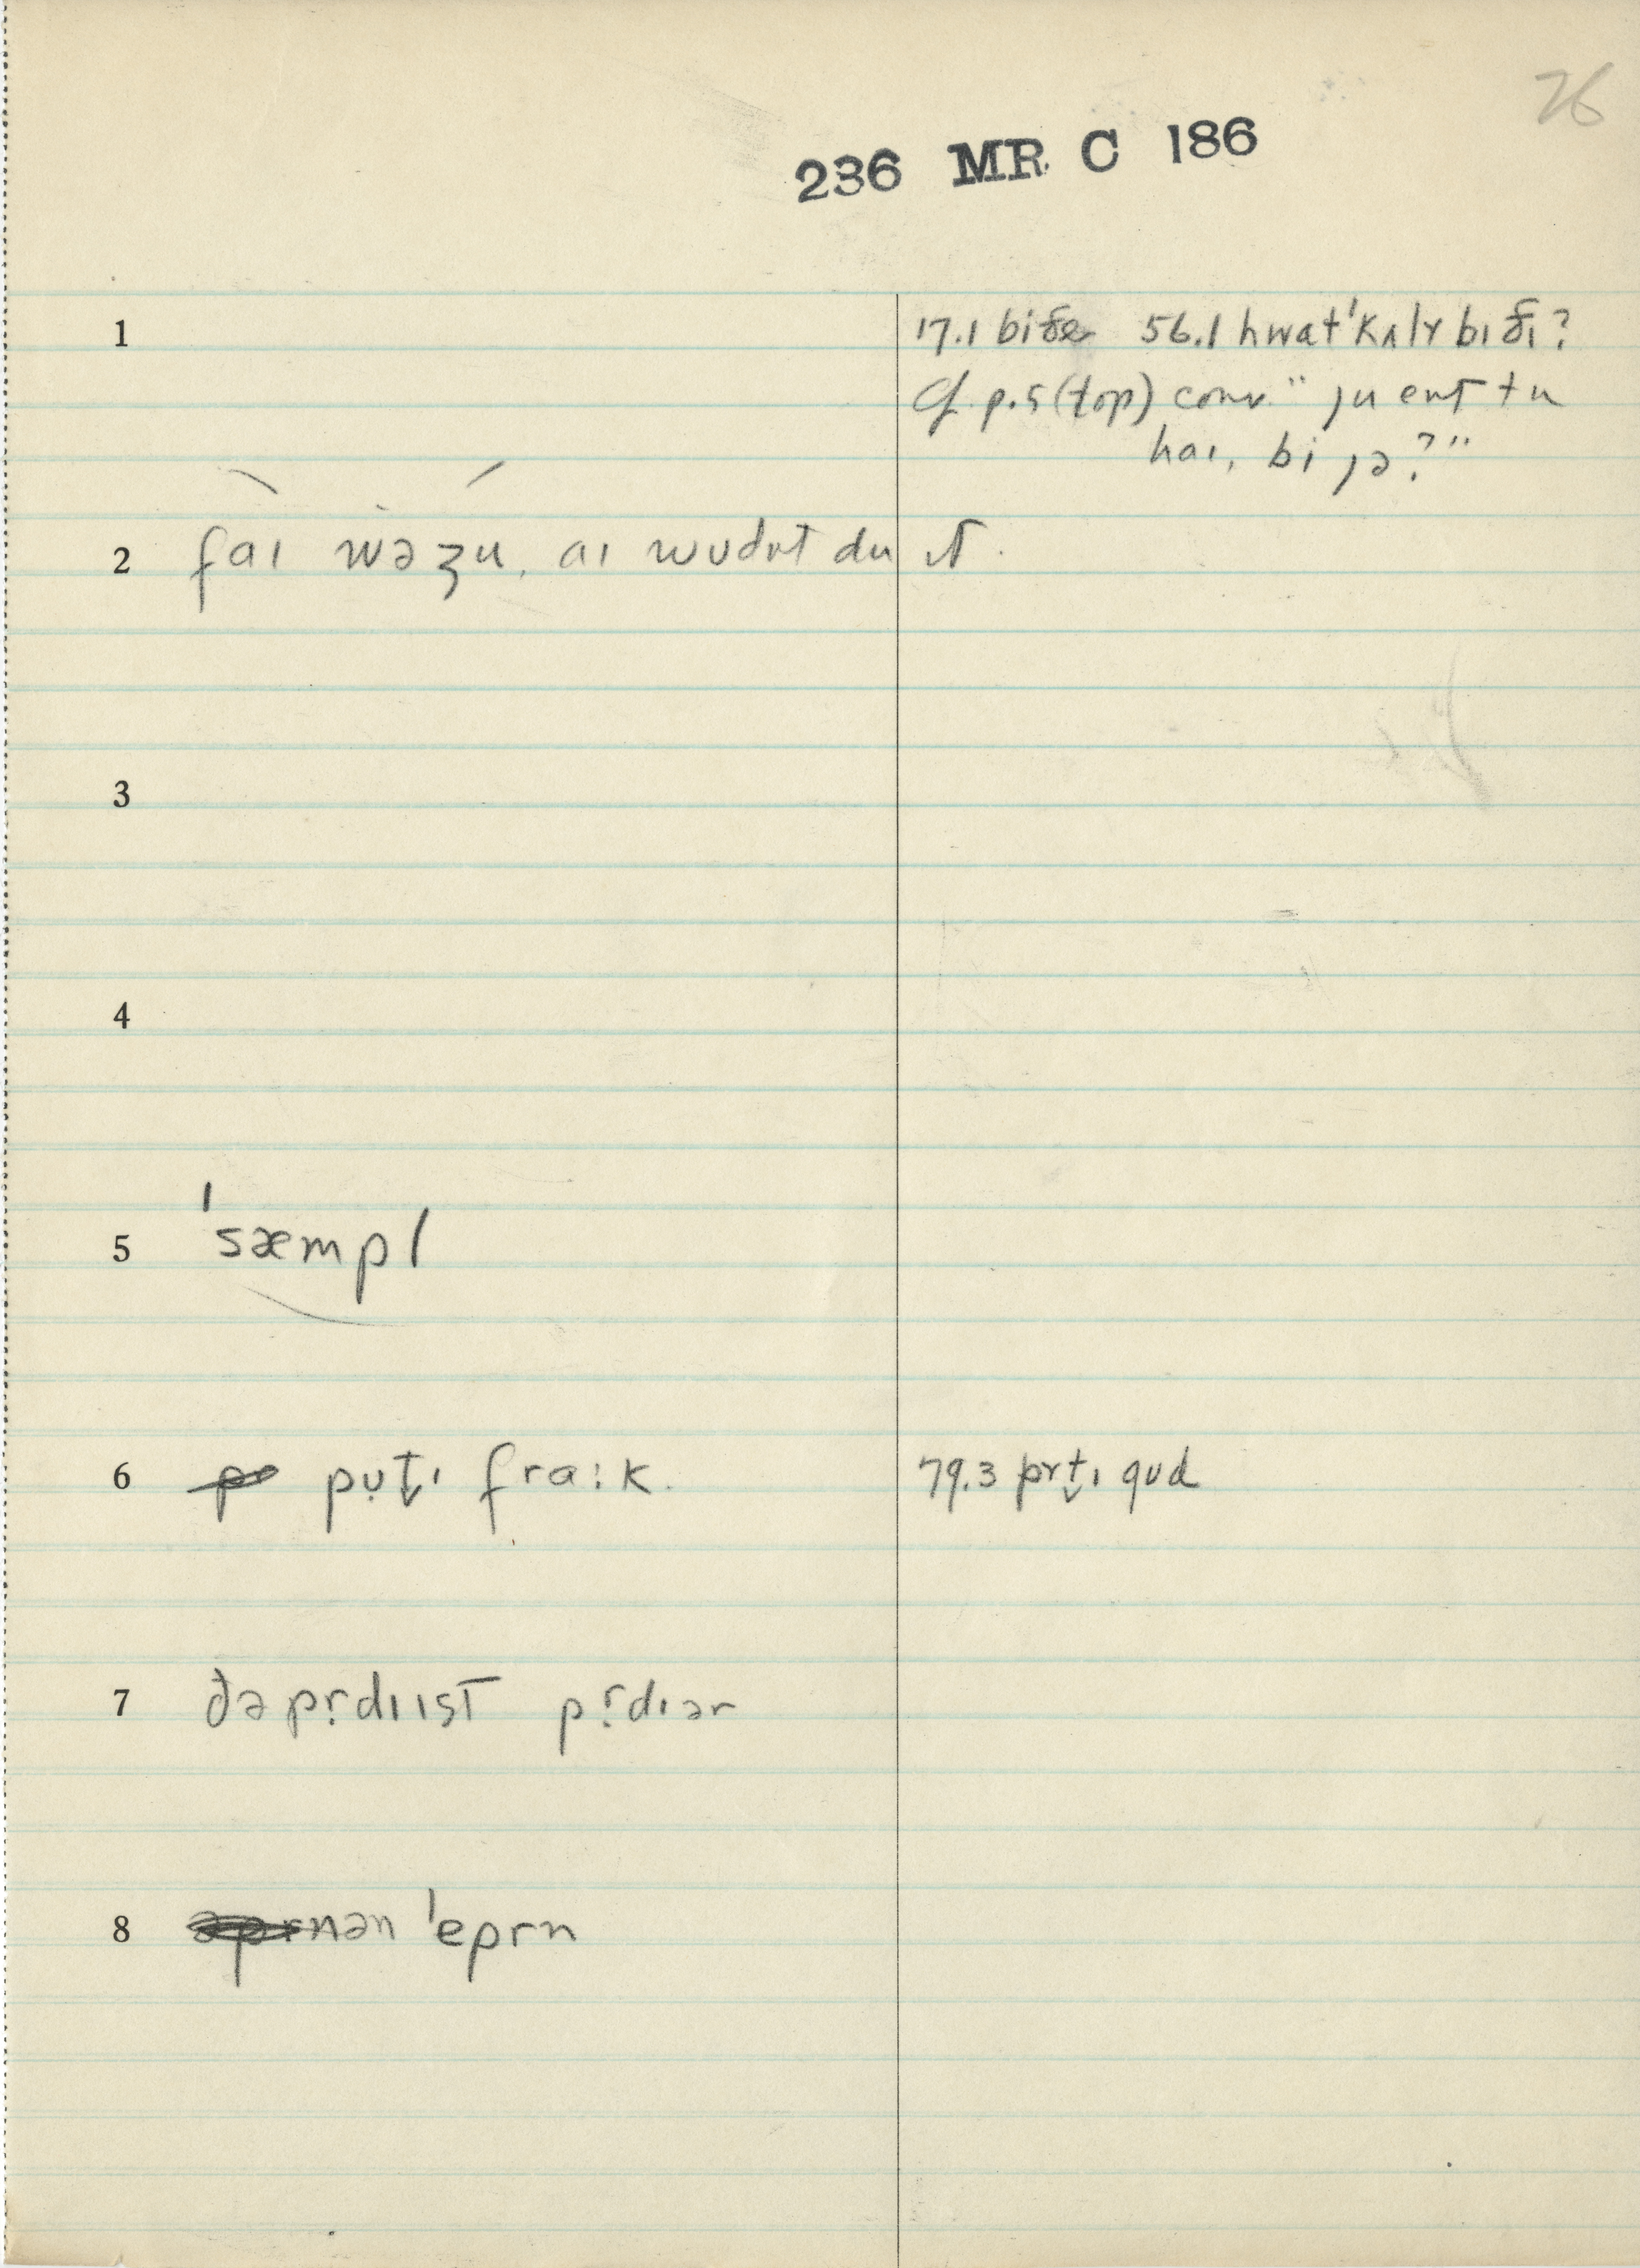 76
236 MR C 186
1 17.1 biðe 56.1 hwat ˈkʌlɤ bɪ ðɪ?
Cf. p.5 (top) conv. "ju ent tu
haɪ, bi jə?"
2 faɪ wəʒu, aɪ wʊdnt du ɪt.
3
4
5 ˈsæmpl
6 pʊt̬ɪ fra:k. 79.3 prt̬ɪ gud
7 ðə prdɪɪst prdɪər
8 nən ˈeprn